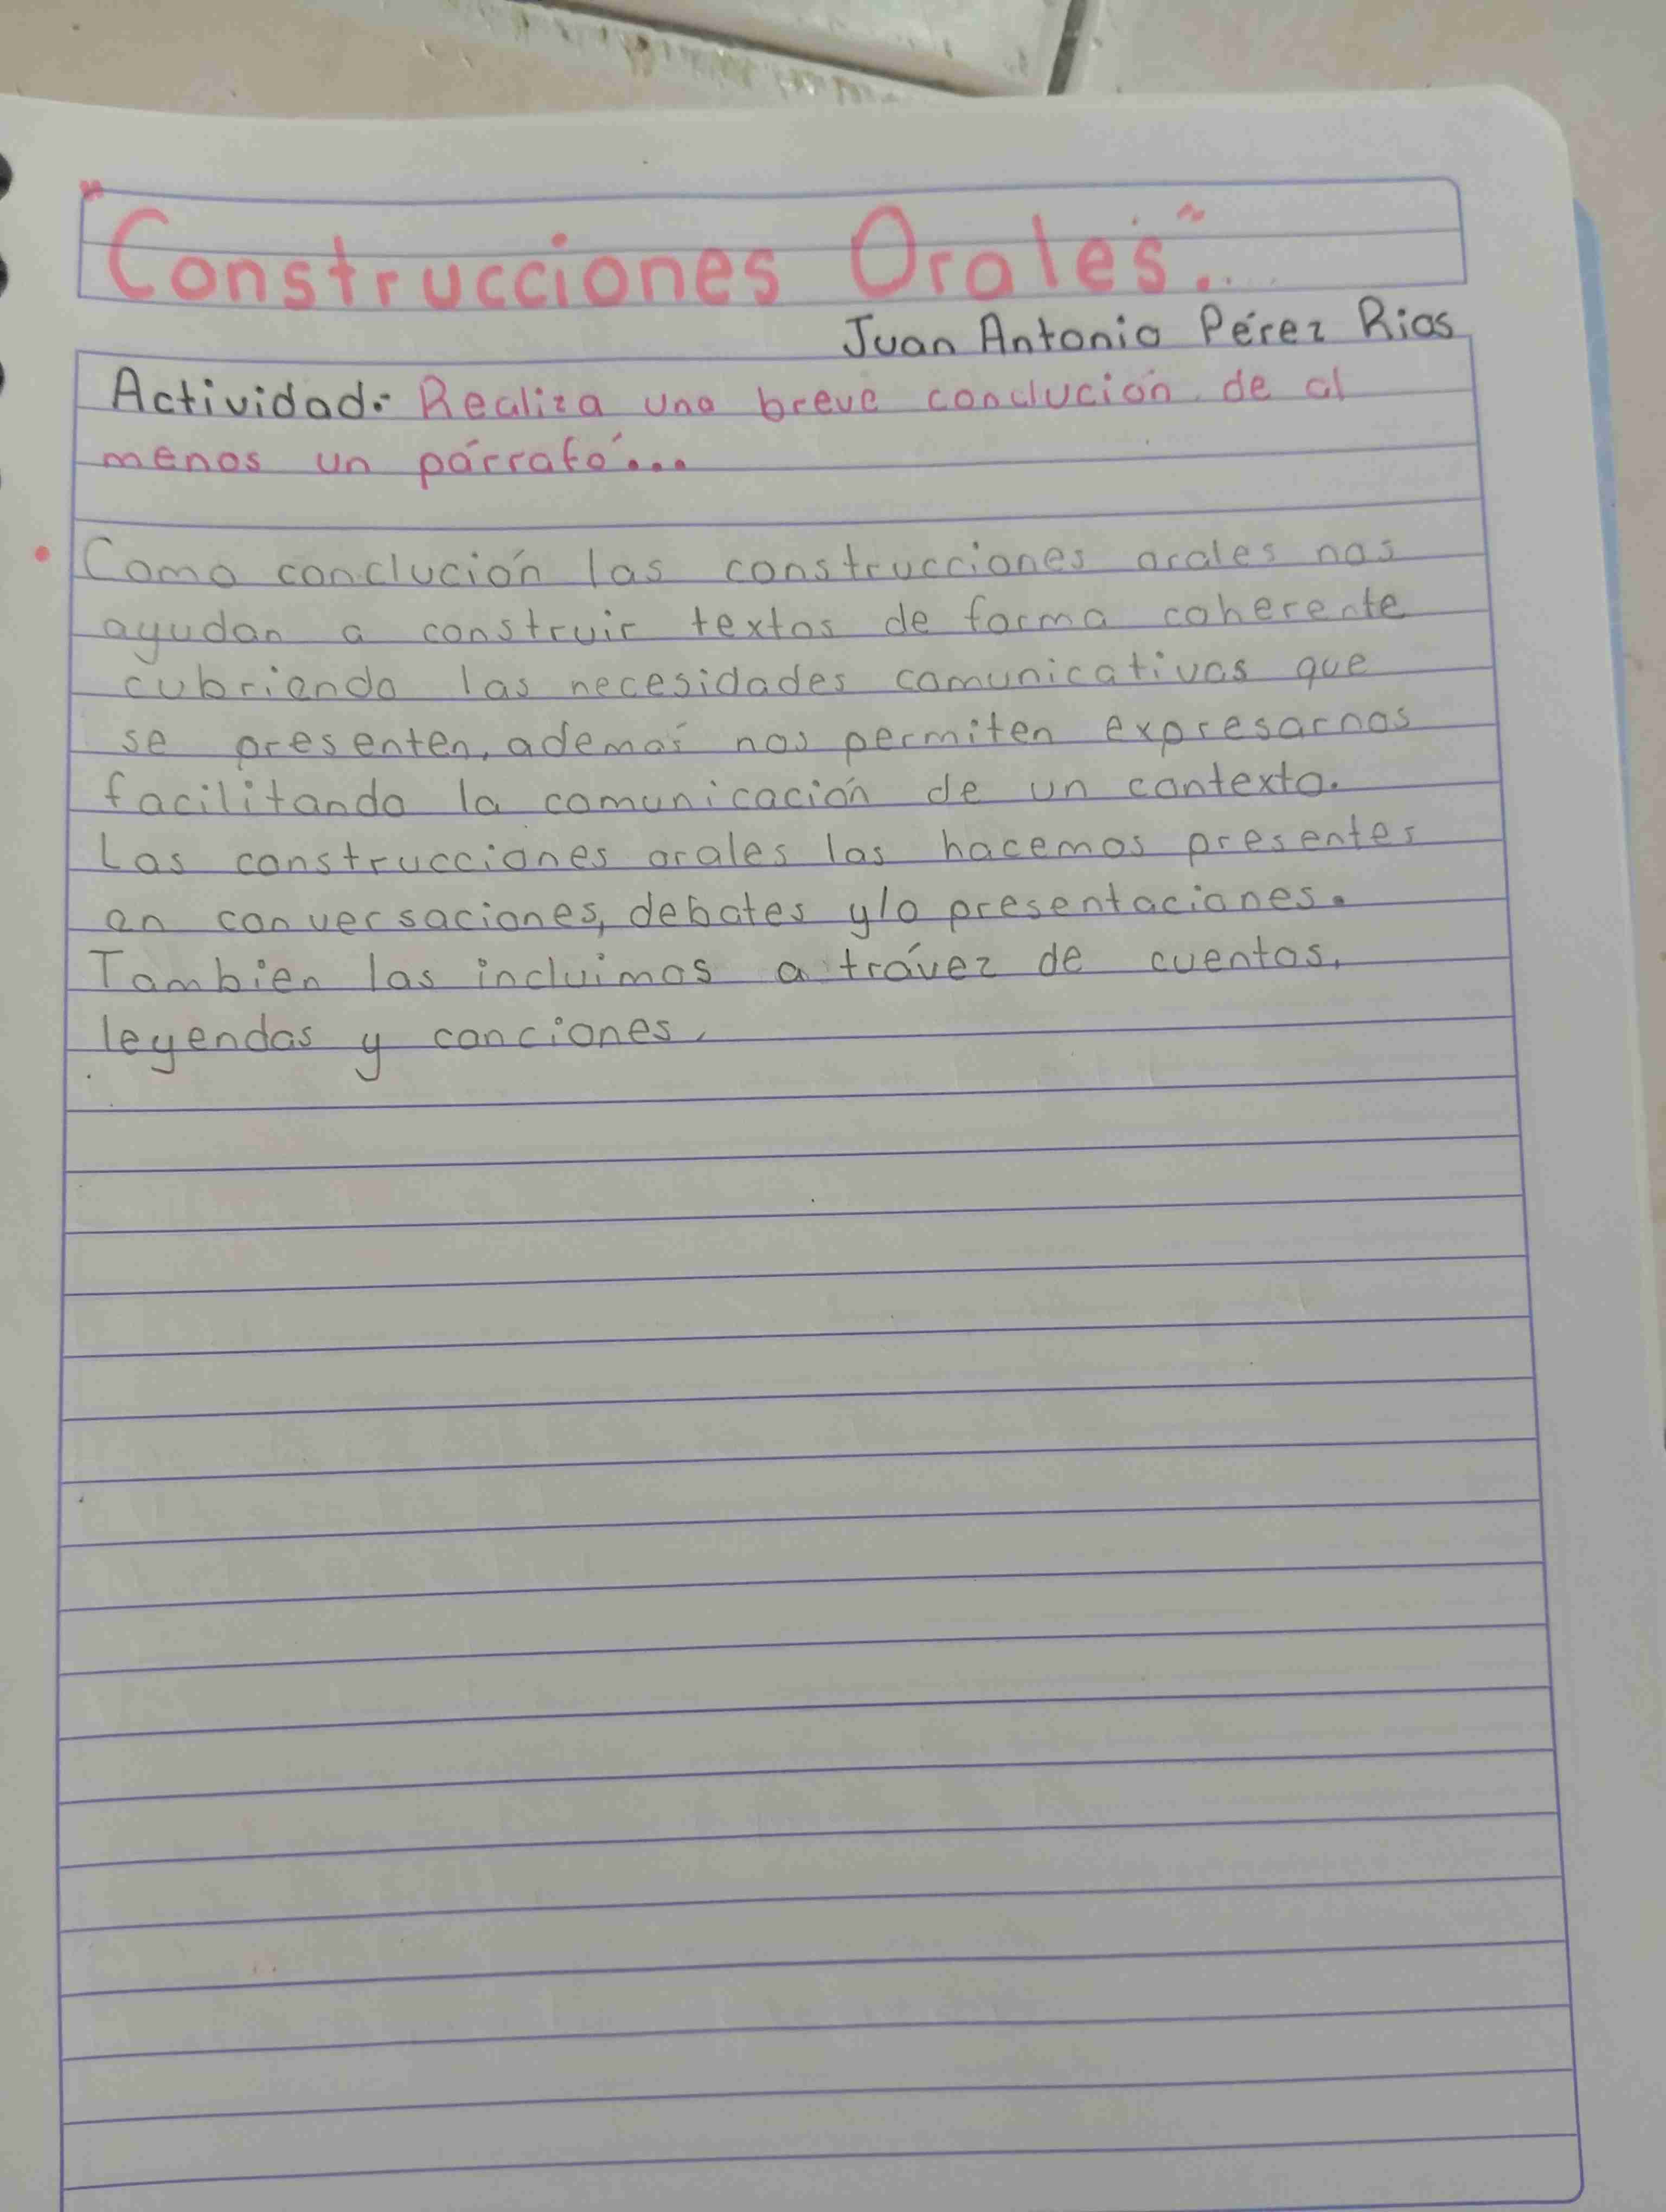 "Construcciones Orales".
Juan Antonio Pérez Rios
Actividad: Realiza una breve conclución de al
menos un párrafo...
• Como conclución las construcciones orales nos
ayudan a construir textos de forma coherente
cubriendo las necesidades comunicativas que
se presenten, ademas nos permiten expresarnos
facilitando la comunicación de un contexto.
Las construcciones orales las hacemos presentes
en conversaciones, debates y/o presentaciones.
Tambien las incluimos a trávez de cuentos,
leyendas y canciones.